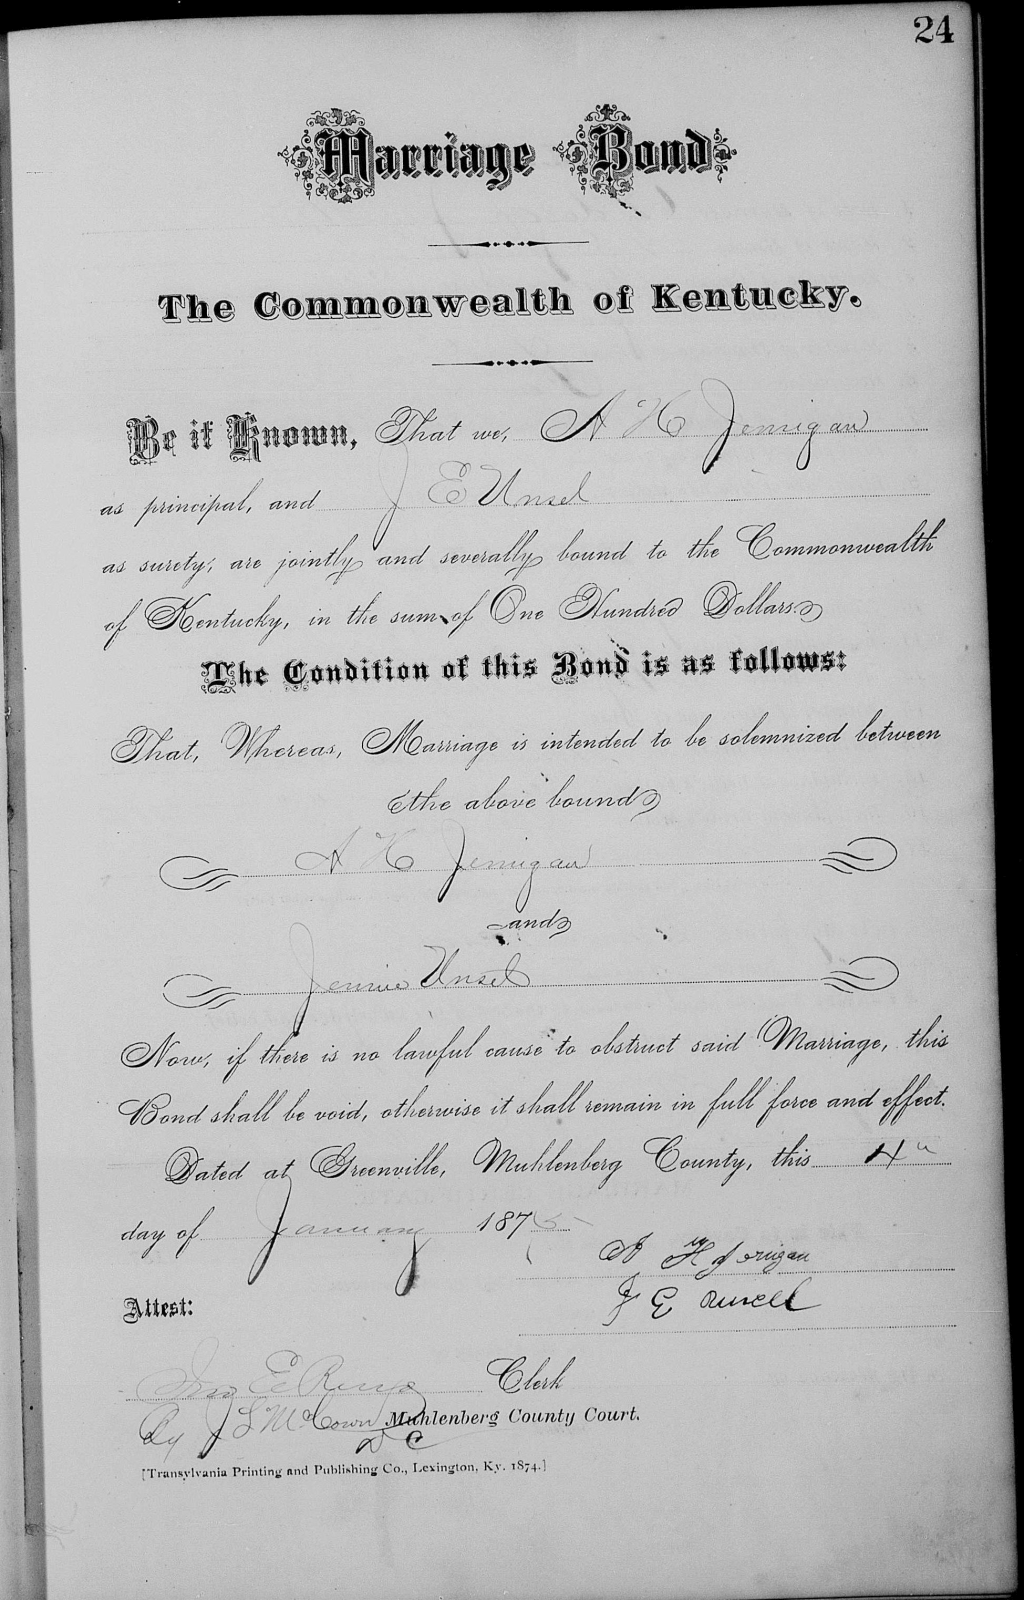 24
Marriage Bond
The Commonwealth of Kentucky.
Be it Known, That we, A H Jernigan
as principal, and J E Unsel
as surety, are jointly and severally bound to the Commonwealth
of Kentucky, in the sum of One Hundred Dollars.
The Condition of this Bond is as follows:
That, Whereas, Marriage is intended to be solemnized between
the above bound
A H Jernigan
and
Jennie Unsel
Now, if there is no lawful cause to obstruct said Marriage, this
Bond shall be void, otherwise it shall remain in full force and effect.
Dated at Greenville, Muhlenberg County, this 4th
day of January 1875
A H Jernigan
J E
Attest:
E Clerk
By J L McCown Muhlenberg County Court.
D C
[Transylvania Printing and Publishing Co., Lexington, Ky. 1874.]